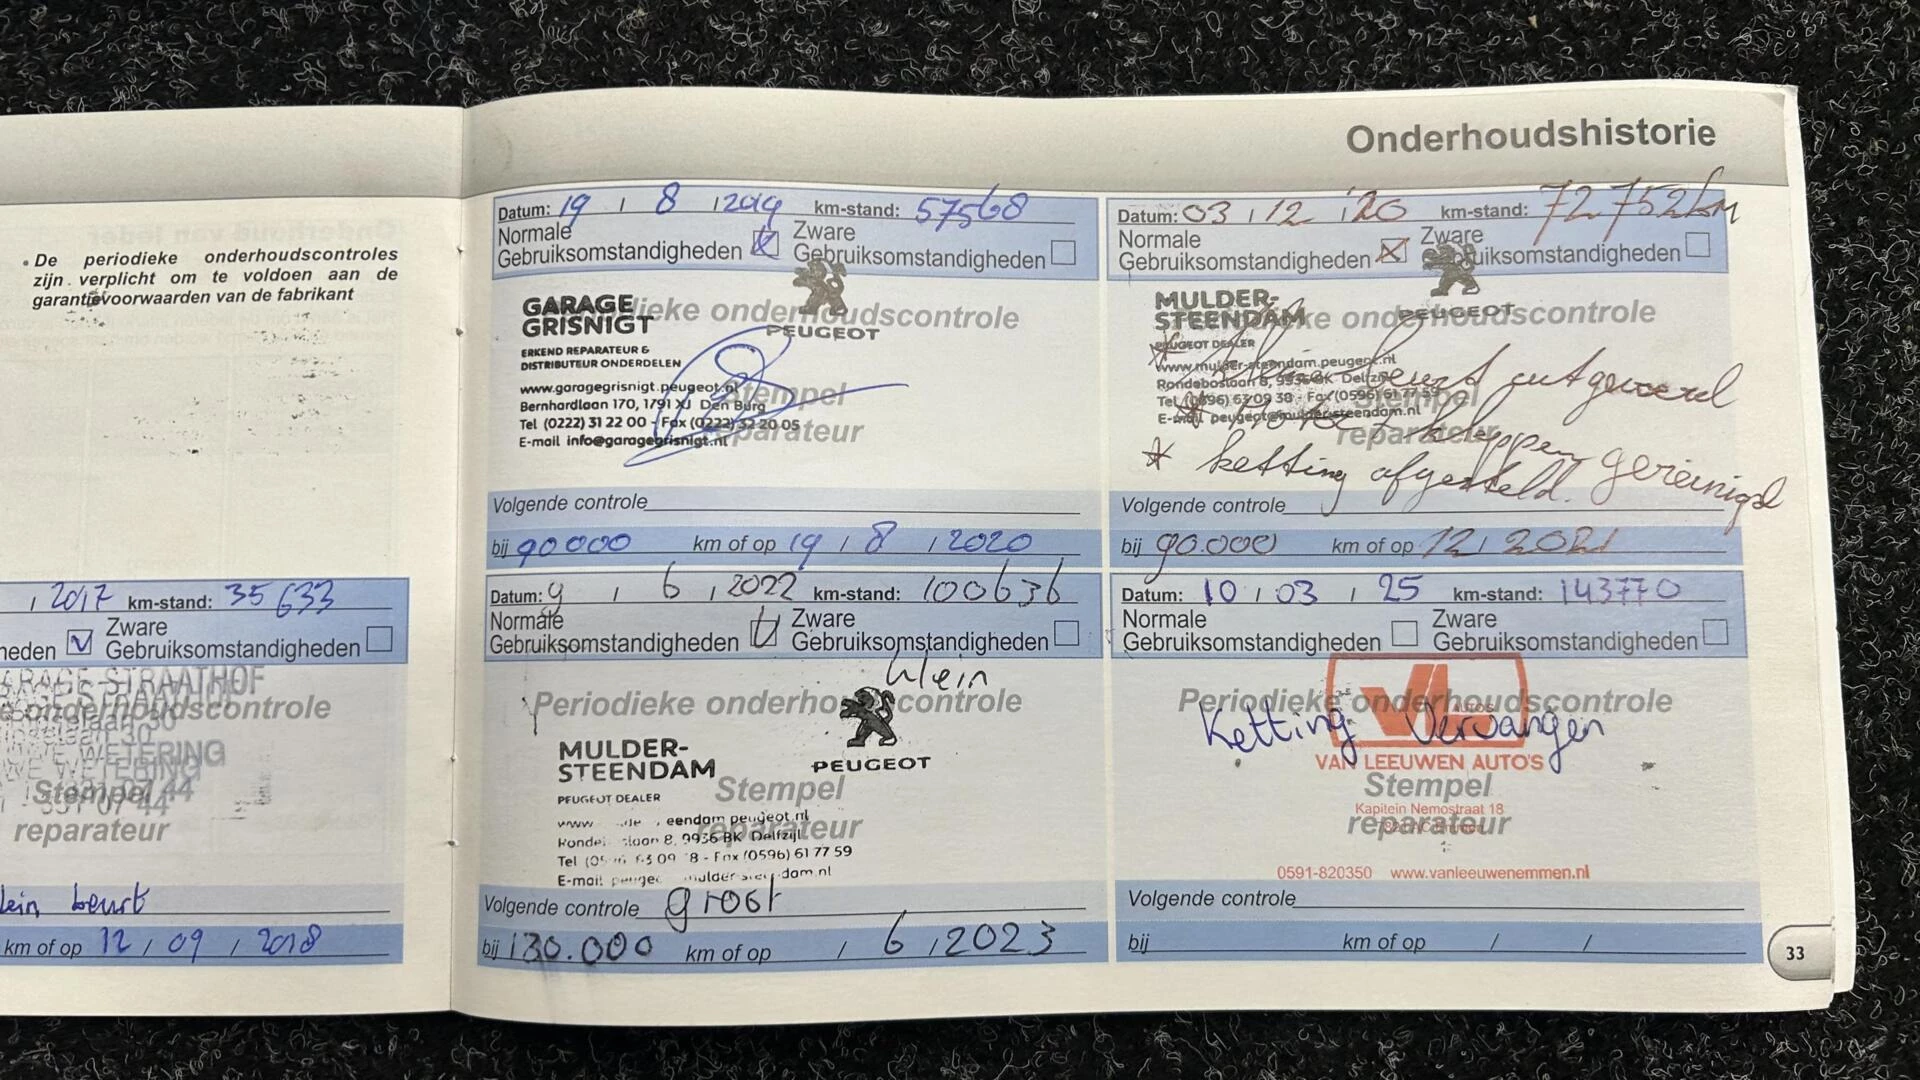 Onderhoudshistorie
• De periodieke onderhoudscontroles
zijn verplicht om te voldoen aan de
garantievoorwaarden van de fabrikant
/ 2017 km-stand: 35 633
heden Zware
Gebruiksomstandigheden
GARAGE STRAATHOF
onderhoudscontrole
WETERING
Stempel
reparateur
klein beurt
km of op 12 / 09 / 2018
Datum: 19 / 8 / 2019 km-stand: 57568
Normale
Gebruiksomstandigheden
Zware
Gebruiksomstandigheden
Periodieke onderhoudscontrole
GARAGE
GRISNIGT
PEUGEOT
ERKEND REPARATEUR &
DISTRIBUTEUR ONDERDELEN
www.garagegrisnigt.peugeot.nl
Bernhardlaan 170, 1791 XJ Den Burg
Tel (0222) 31 22 00 - Fax (0222) 32 20 05
E-mail info@garagegrisnigt.nl
Stempel
reparateur
Volgende controle
bij 90000 km of op 19 / 8 / 2020
Datum: 03 / 12 / '20 km-stand: 72 752 km
Normale
Gebruiksomstandigheden
Zware
Gebruiksomstandigheden
Periodieke onderhoudscontrole
MULDER-
STEENDAM
PEUGEOT
PEUGEOT DEALER
www.mulder-steendam.peugeot.nl
Rondeboslaan 8, 9936 BK Delfzijl
Tel (0596) 63 09 38 - Fax (0596) 61 77 59
E-mail peugeot@muldersteendam.nl
Stempel
reparateur
* Kleine beurt uitgevoerd
* kleppen gereinigd
* ketting afgesteld.
Volgende controle
bij 90.000 km of op 12 / 2021
Datum: 9 / 6 / 2022 km-stand: 100636
Normale
Gebruiksomstandigheden
Zware
Gebruiksomstandigheden
klein
Periodieke onderhoudscontrole
MULDER-
STEENDAM
PEUGEOT
PEUGEOT DEALER
Stempel
reparateur
eendam peugeot.nl
8, 9936 BK Delfzijl
Tel - Fax (0596) 61 77 59
E-mail
Volgende controle groot
bij 130.000 km of op / 6 / 2023
Datum: 10 / 03 / 25 km-stand: 143770
Normale
Gebruiksomstandigheden
Zware
Gebruiksomstandigheden
Periodieke onderhoudscontrole
VL AUTO'S
Ketting Vervangen
VAN LEEUWEN AUTO'S
Stempel
Kapitein Nemostraat 18
reparateur
0591-820350 www.vanleeuwenemmen.nl
Volgende controle
bij km of op / /
33